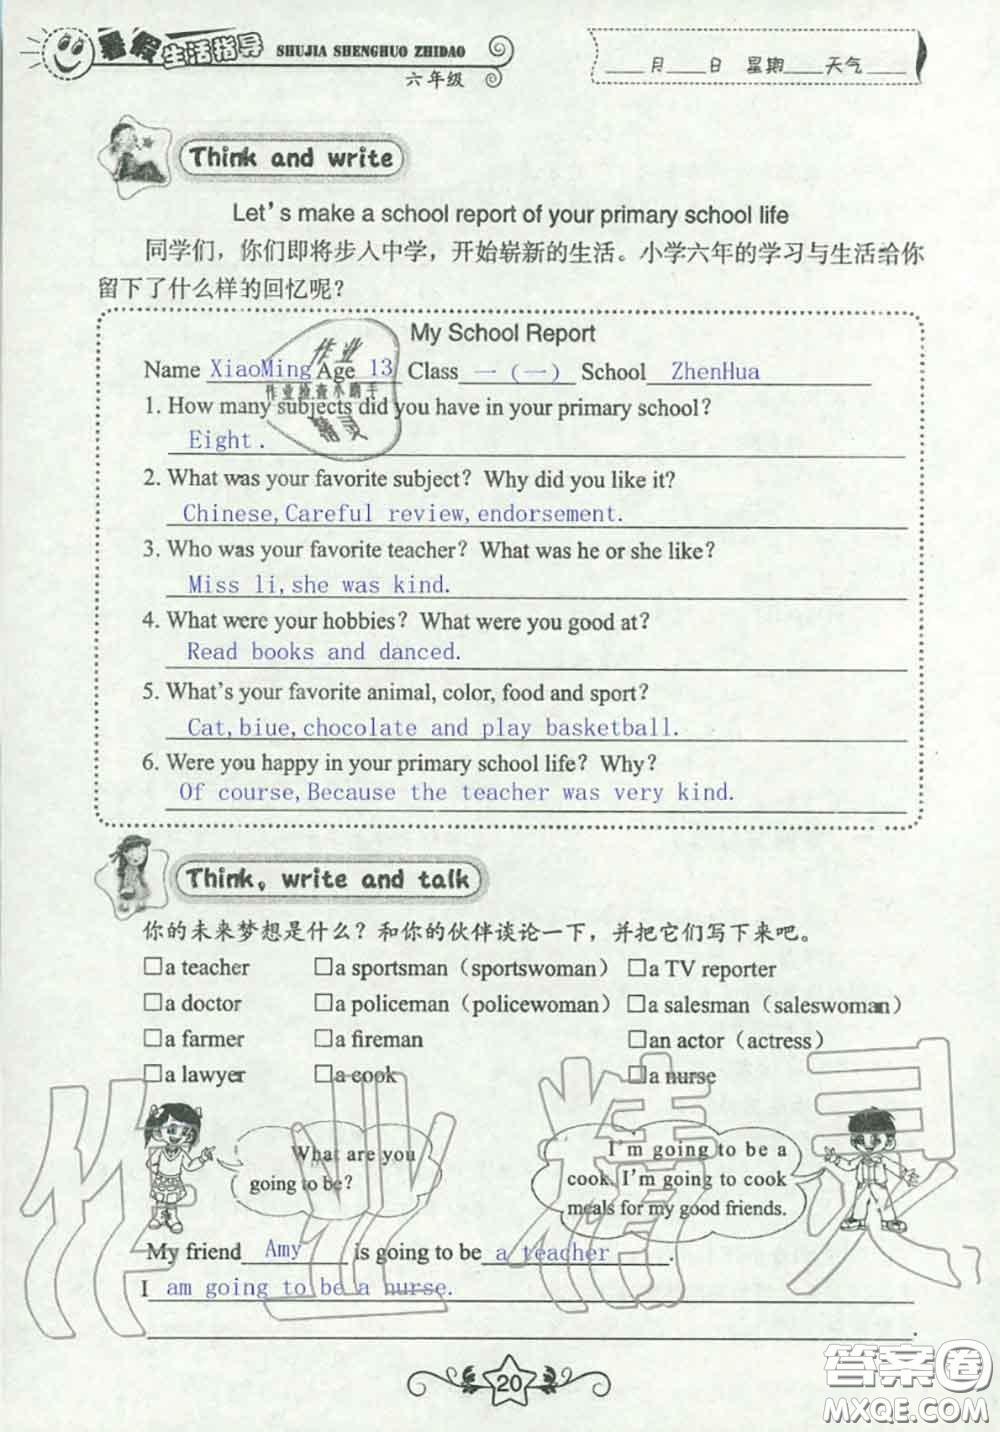 暑假生活指导 SHUJIA SHENGHUO ZHIDAO
六年级
____月____日 星期____天气____
Think and write
Let's make a school report of your primary school life
同学们，你们即将步入中学，开始崭新的生活。小学六年的学习与生活给你
留下了什么样的回忆呢？
My School Report
Name XiaoMing Age 13 Class 一（一） School ZhenHua
作业
作业检查小助手
精灵
1. How many subjects did you have in your primary school?
Eight.
2. What was your favorite subject? Why did you like it?
Chinese,Careful review,endorsement.
3. Who was your favorite teacher? What was he or she like?
Miss li,she was kind.
4. What were your hobbies? What were you good at?
Read books and danced.
5. What's your favorite animal, color, food and sport?
Cat,biue,chocolate and play basketball.
6. Were you happy in your primary school life? Why?
Of course,Because the teacher was very kind.
Think, write and talk
你的未来梦想是什么？和你的伙伴谈论一下，并把它们写下来吧。
□a teacher □a sportsman（sportswoman） □a TV reporter
□a doctor □a policeman（policewoman） □a salesman（saleswoman）
□a farmer □a fireman □an actor（actress）
□a lawyer □a cook □a nurse
What are you
going to be?
I'm going to be a
cook. I'm going to cook
meals for my good friends.
My friend Amy is going to be a teacher.
I am going to be a nurse.
作业精灵
20
答案圈
MXQE.COM